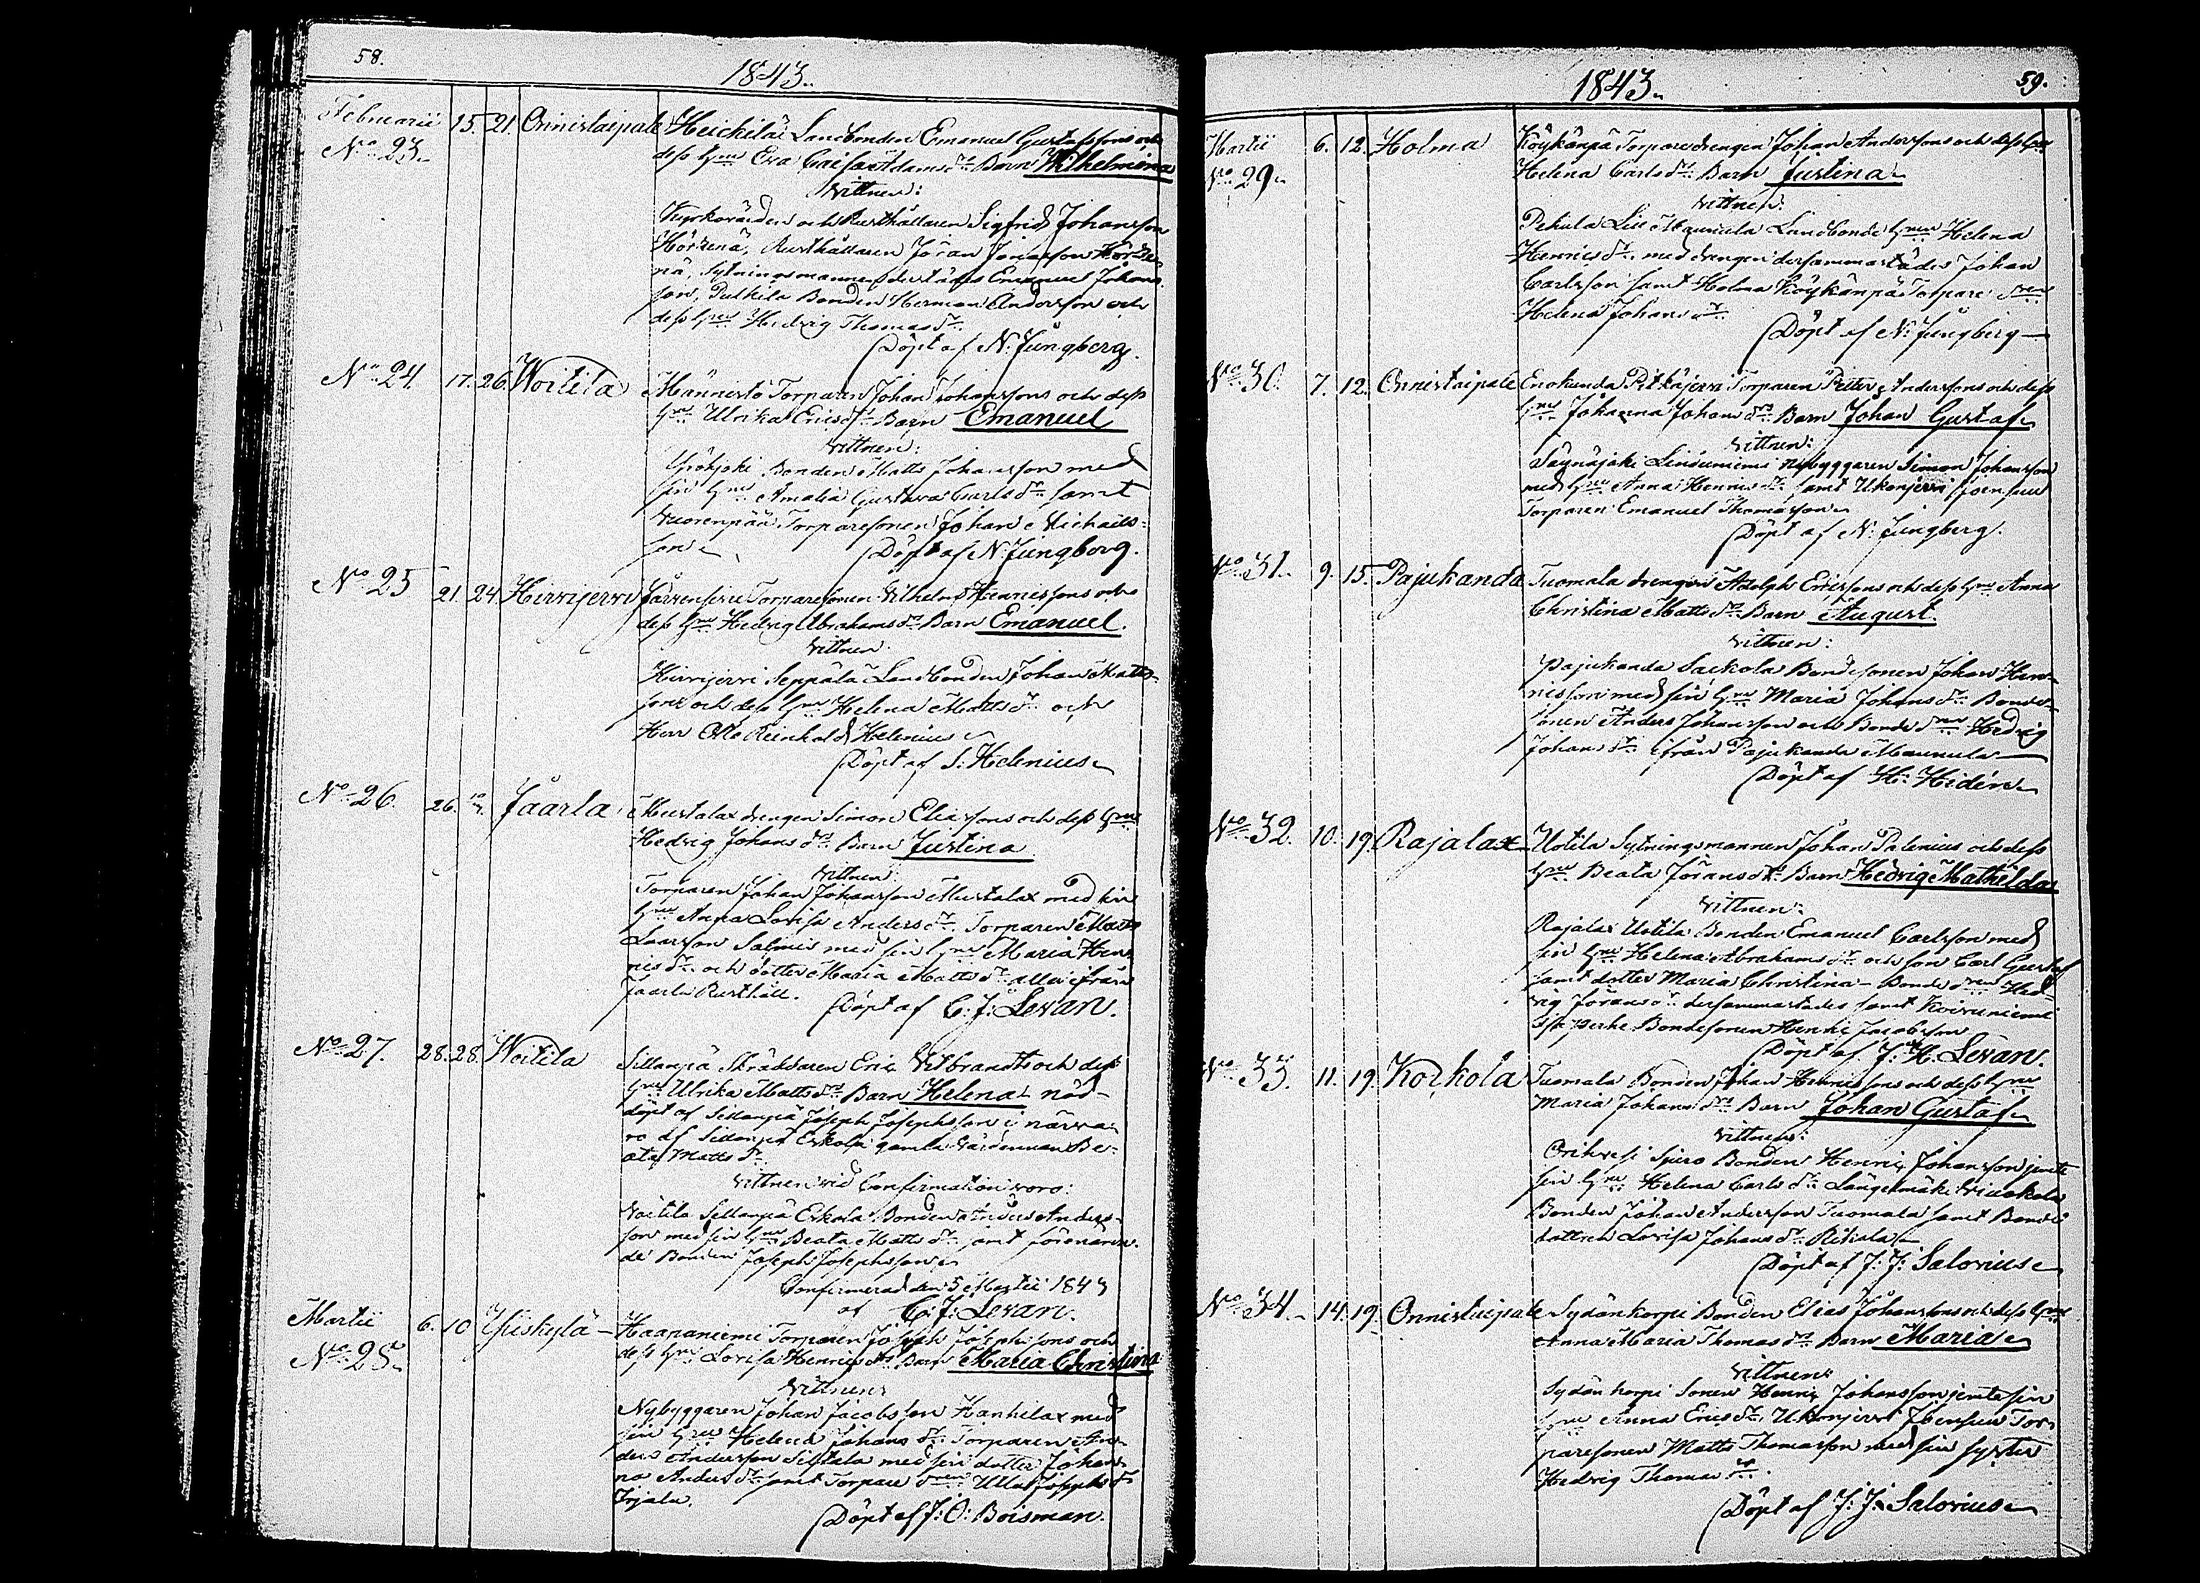 58.
1843.
Februarii 15. 21. Onnistaipale Heickilä Landbonden Emanuel Gustafssons och
No 23. dess hu Eva Caisa Adams dr Barn Wilhelmina
Vittnen:
Kyrkovärden och Rusthållaren Sigfrid Johansson
Rusthållaren Jöran Johansson
nä, Sytningsmannen Emanuel Johans
son, Pulkila Bonden Herman Andersson och
dess hu Hedvig Thomas dr
Döpt af N. Ljungberg.
No 24 17. 26. Woitila Männistö Torparen Johan Johanssons och dess
hu Ulrika Erics dr Barn Emanuel
Vittnen:
Bonden Matts Johansson med
sin hu Amalia Gustava Carls dr samt
Vuorenpää Torparesonen Johan Michaels-
son
Döpt af N. Ljungberg.
No 25 21. 24. Hirvijervi Torparesonen Vilhelm Henricssons och
dess hu Hedvig Abrahams dr Barn Emanuel.
Vittnen:
Hirvijervi Seppälä Landbonden Johan Matts-
son och dess hu Helena Matts dr och
Herr Otto Reinhold Helenius
Döpt af S. Helenius
No 26. 26. Jåårla Mustalax drengen Simon Eliassons och dess hu
Hedvig Johans dr Barn Justina
Vittnen:
Torparen Johan Johansson Mustalax med sin
hu Anna Lovisa Anders dr Torparen Matts
Larsson Salmis med sin hu Maria Hen-
rics dr och dotter Maria Matts dr alla ifrån
Jåårla Rusthåll.
Döpt af C: J: Levan.
No 27. 28. 28. Woitila Sillanpä Skräddaren Eric Vilbrandts och dess
hu Ulrika Matts dr Barn Helena nöd-
döpt af Sillanpä Joseph Josephsson i närva-
ro af Sillanpä Eskola gamla Värdinnan Be-
ata Matts dr
Vittnen vid Confirmation voro:
Voitila Sillanpä Eskola Bonden Anders Anders-
son med sin hu Beata Matts dr samt förenämn-
de Bonden Joseph Josephsson
Confirmerad den 5 Martii 1843
af C: J: Levan.
Martii 6. 10. Yliskylä Haapaniemi Torparen Joseph Josephssons och
No 28. dess hu Lovisa Henrics dr Barn Maria Christina
Vittnen:
Nybyggaren Johan Jacobsson Hanhilax med
sin hu Helena Johans dr Torparen An-
ders Andersson Siltala med sin dotter Johan-
na Anders dr samt Torpare Ulla Josephs dr
Irjala.
Döpt af J: O: Boisman.
1843. 59.
Martii 6. 12. Holma Köykänpä Torpare drengen Johan Anderssons och dess hu
No 29. Helena Carls dr Barn Justina
Vittnen:
Pehula Lill Mauriala Landbonde hu Helena
Henrics dr med drengen dersammastädes Johan
Carlsson samt Holma Köykänpä Torpare
Helena Johans dr
Döpt af N: Ljungberg
No 30. 7. 12. Onnistaipale Enokunda Pitkäjervi Torparen Petter Anderssons och dess
hu Johanna Johans dr Barn Johan Gustaf
Vittnen:
Säynäjoki Linduniemi nybyggaren Simon Johansson
med hu Anna Henrics dr samt Ukonjervi Joensuu
Torparen Emanuel Thomasson
Döpt af N: Ljungberg.
No 31. 9. 15. Pajukanda Tuomala drengen Adolph Ericssons och dess hu Anna
Christina Matts dr Barn August.
Vittnen:
Pajukanda Sackola Bondesonen Johan Hen-
ricsson med sin hu Maria Johans dr Bonde-
sonen Anders Johansson och Bonde Hedvig
Johans dr ifrån Pajukanda Maunula
Döpt af H: Hidén
No 32. 10. 19. Rajalax Uotila Sytningsmannen Johan Palenius och dess
hu Beata Jörans dr Barn Hedvig Mathilda
Vittnen:
Rajalax Uotila Bonden Emanuel Carlsson med
sin hu Helena Abrahams dr och son Carl Gustaf
samt dotter Maria Christina Bonde Hed-
vig Jörans dr dersammastädes samt Koivuniemi
Bondesonen Henric Jacobsson
Döpt af J: H. Levan.
No 33. 11. 19. Korkola Tuomala Bonden Johan Henricssons och dess hu
Maria Johans dr Barn Johan Gustaf
Vittnen:
Orihvesi Spiro Bonden Henric Johansson jemte
sin hu Helena Carls dr Längelmäki
Bonden Johan Andersson Tuomala samt Bonde
dottren Lovisa Johans dr
Döpt af J: J: Salovius
No 34. 14. 19. Onnistaipale Sydänkorpi Bonden Elias Johanssons och dess hu
Anna Maria Thomas dr Barn Maria
Vittnen:
Sydänkorpi Sonen Henric Johansson jemte sin
hu Anna Erics dr Ukonjervi Joensuu Tor-
paresonen Matts Thomasson med sin syster
Hedvig Thomas dr.
Döpt af J: J: Salovius